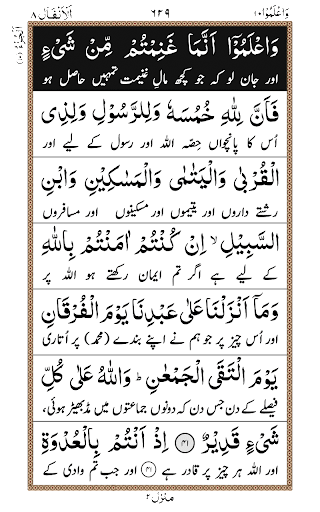 واعلموا۱۰ ٦٤٩ الانفال ۸
وَاعْلَمُوْٓا اَنَّمَا غَنِمْتُمْ مِّنْ شَیْءٍ
اور جان لو کہ جو کچھ مالِ غنیمت تمہیں حاصل ہو
فَاَنَّ لِلّٰهِ خُمُسَهٗ وَلِلرَّسُوْلِ وَلِذِی
اُس کا پانچواں حصّہ اللہ اور رسول کے لیے اور
الْقُرْبٰی وَالْیَتٰمٰی وَالْمَسٰكِیْنِ وَابْنِ
رشتے داروں اور یتیموں اور مسکینوں اور مسافروں
السَّبِیْلِ ۙ اِنْ كُنْتُمْ اٰمَنْتُمْ بِاللّٰهِ
کے لیے ہے اگر تم ایمان رکھتے ہو اللہ پر
وَمَاۤ اَنْزَلْنَا عَلٰی عَبْدِنَا یَوْمَ الْفُرْقَانِ
اور اُس چیز پر جو ہم نے اپنے بندے (محمدؐ) پر اُتاری
یَوْمَ الْتَقَی الْجَمْعٰنِ ؕ وَاللّٰهُ عَلٰی كُلِّ
فیصلے کے دن جس دن کہ دونوں جماعتوں میں مڈبھیڑ ہوئی،
شَیْءٍ قَدِیْرٌ ﴿۴۱﴾ اِذْ اَنْتُمْ بِالْعُدْوَةِ
اور اللہ ہر چیز پر قادر ہے ﴿۴۱﴾ اور جب تم وادی کے
منزل ۲